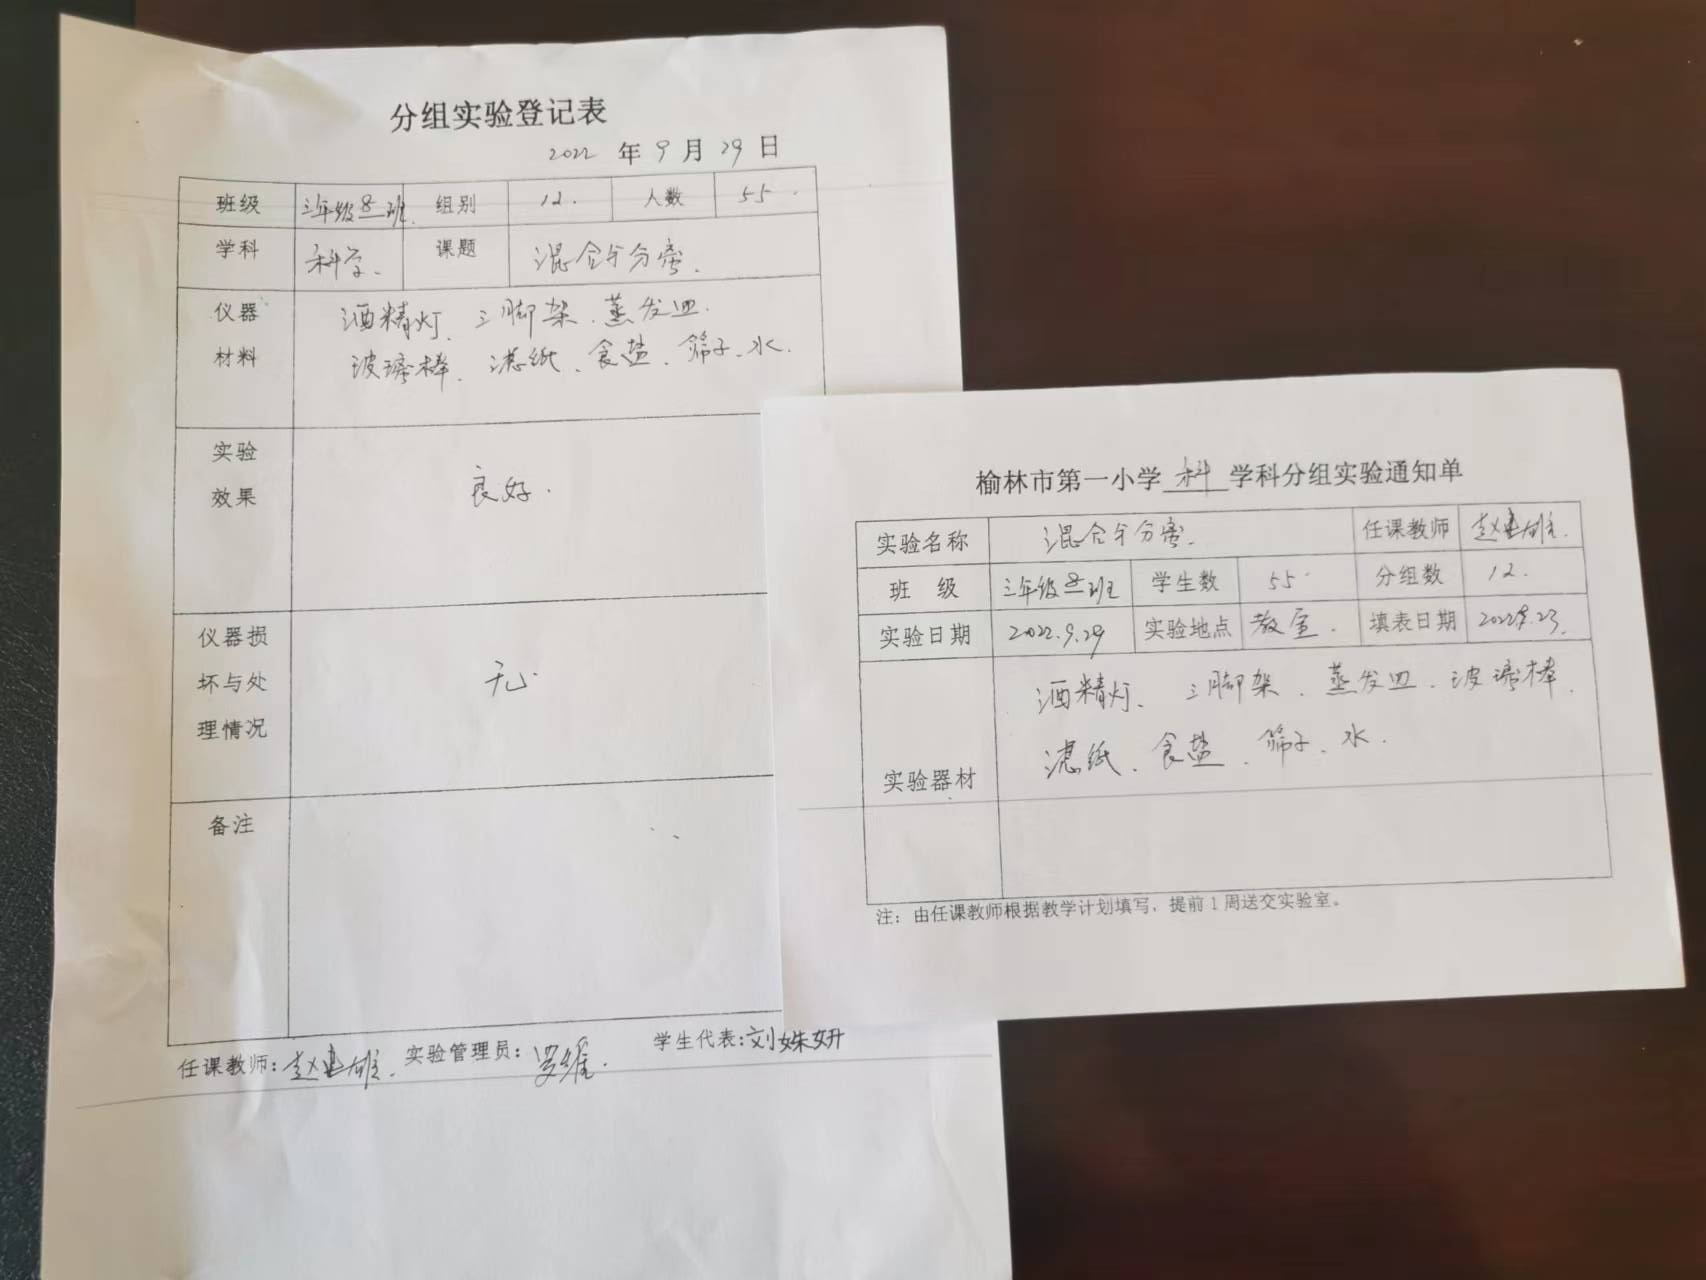 分组实验登记表
2022 年 9 月 29 日
班级 三年级8班 组别 12. 人数 55.
学科 科学、 课题 混合与分离、
仪器 酒精灯、三脚架、蒸发皿、
材料 玻璃棒、滤纸、食盐、筛子、水.
实验
效果 良好.
仪器损
坏与处 无
理情况
备注
任课教师: 赵建雄. 实验管理员: 罗维. 学生代表: 刘姝妍
榆林市第一小学 科 学科分组实验通知单
实验名称 混合与分离、 任课教师 赵建雄.
班 级 三年级8班 学生数 55 分组数 12.
实验日期 2022.9.29 实验地点 教室. 填表日期 2022.9.23.
酒精灯、三脚架、蒸发皿、玻璃棒、
滤纸、食盐、筛子、水.
实验器材
注:由任课教师根据教学计划填写,提前1周送交实验室。